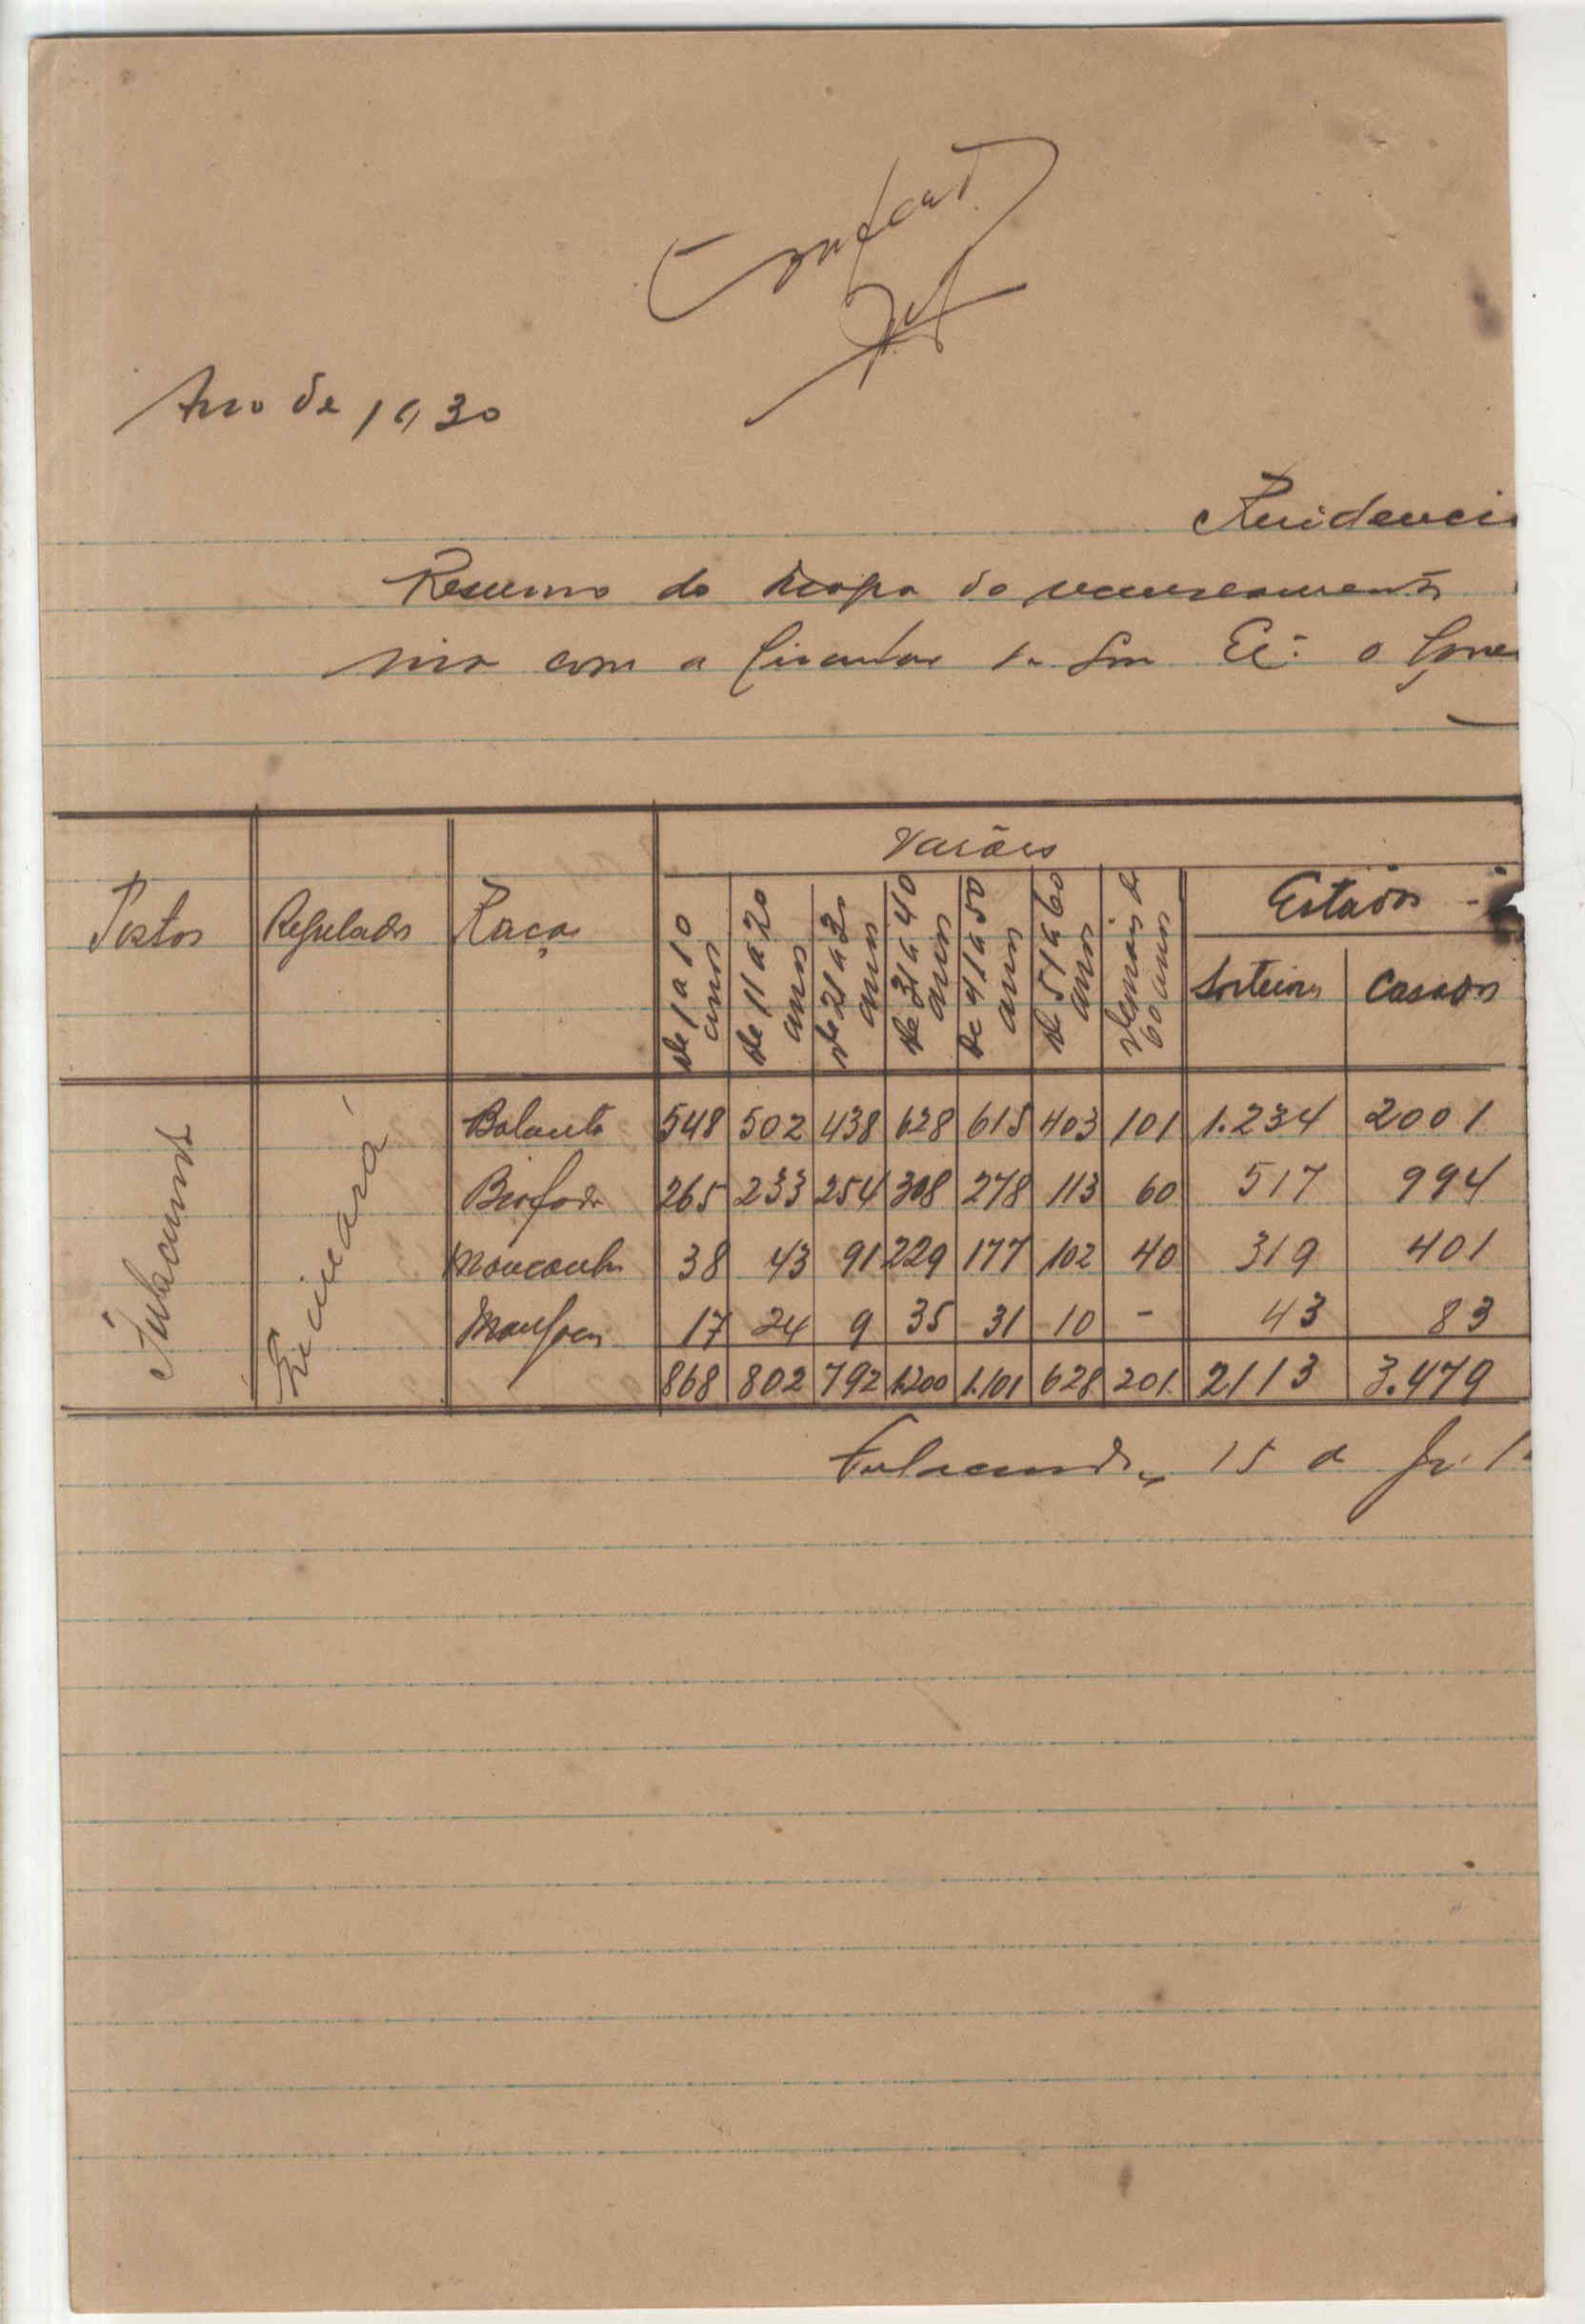 Ano de 1930
Residenci
Resumo do mapa do recenseamento
com a Circular Ex. o Gover
Varões
Postos Regulado Raças de 1 a 10 anos de 11 a 20 anos de 21 a 30 anos de 31 a 40 anos de 41 a 50 anos de 51 a 60 anos de mais de 60 anos Estados
Solteiros Casados
Fulacunda
Balanta 548 502 438 628 615 403 101 1.234 2001
Biafada 265 233 254 308 278 113 60 517 994
Mancanha 38 43 91 229 177 102 40 319 401
17 24 9 35 31 10 - 43 83
868 802 792 1.200 1.101 628 201 2113 3.479
Fulacunda, 15 de